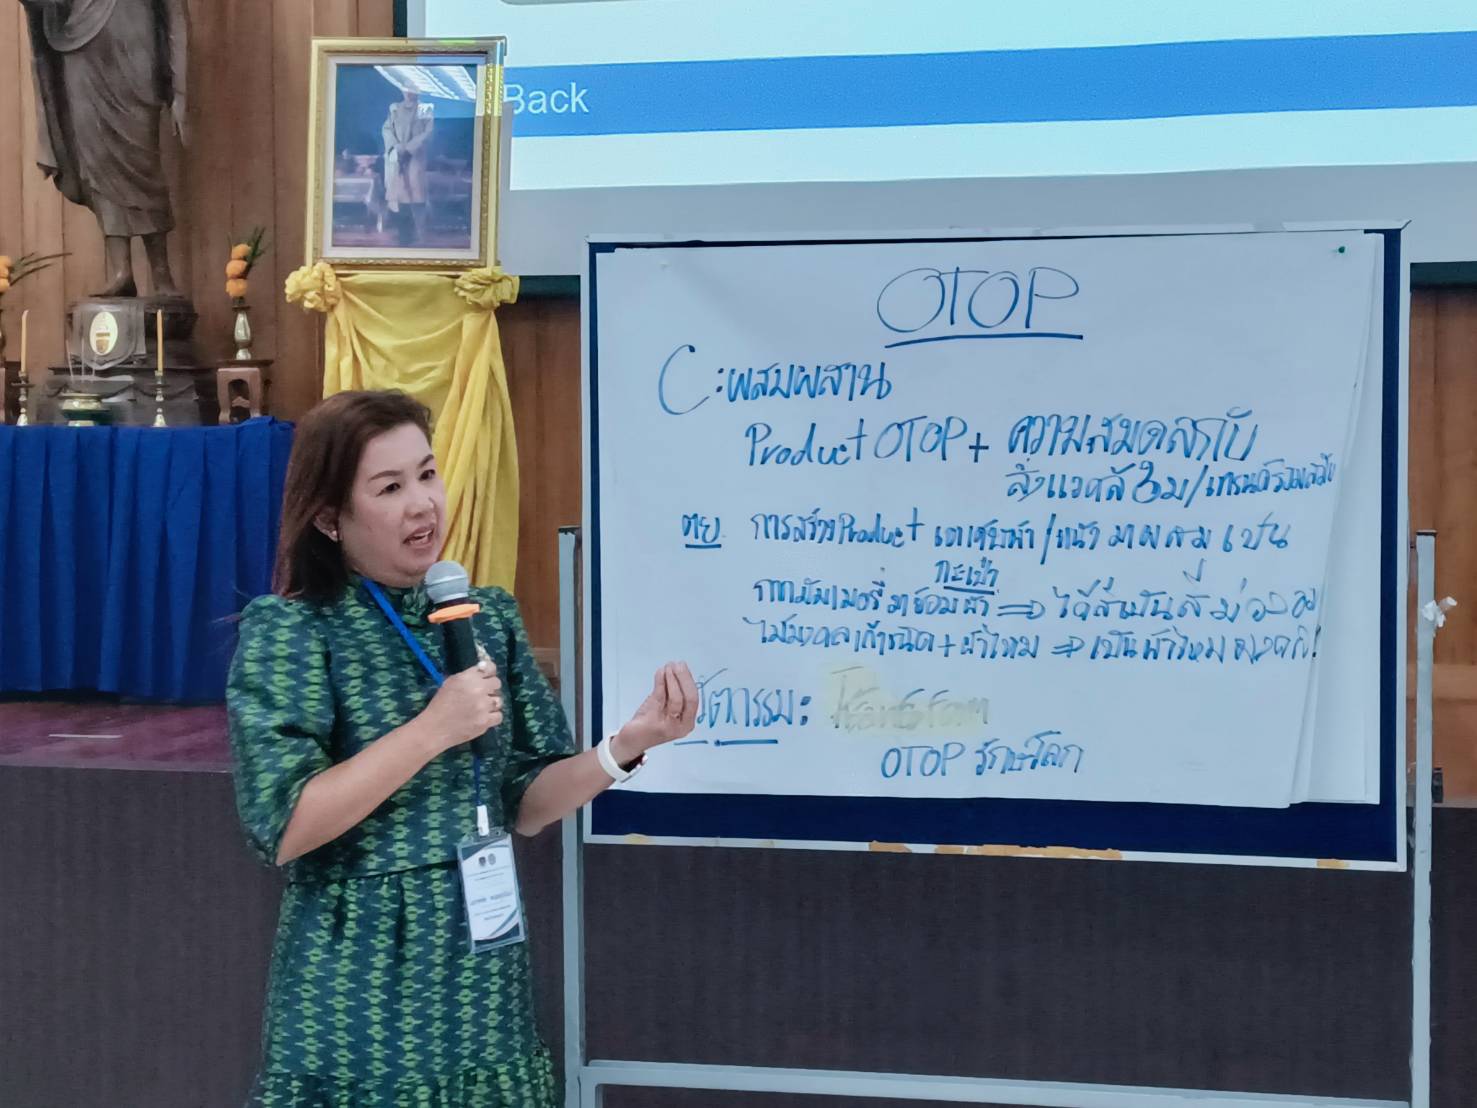 Back
OTOP
C : ผสมผสาน
Product OTOP + ความสมดุลกับ
สิ่งแวดล้อม/เทรนด์ร่วมสมัย
ตย. การสร้าง Product เอาเศษผ้า/หนัง มาผสมเป็น
กระเป๋า
มาย้อมผ้า ⇒ ได้สีเป็นสีม่วงอม
+ ผ้าไหม ⇒ เป็นผ้าไหมมงคล!
วัตกรรม : Transform
OTOP รักษ์โลก